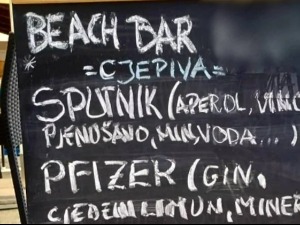 BEACH BAR
* =CJEPIVA=
SPUTNIK (APEROL, VINO
PJENUŠANO, MIN, VODA...)
PFIZER (GIN,
CIJEĐENI LIMUN, MINER